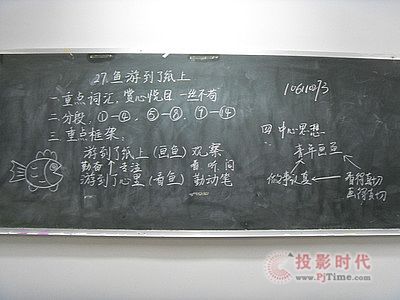 27.鱼游到了纸上
一、重点词汇、赏心悦目 一丝不苟
二、分段、①-④、⑤-⑧、⑨-⑭
三 重点框架、
游到了纸上(画鱼) 观察
勤奋 专注 看 听 问
游到了心里(看鱼) 勤动笔
四 中心思想
青年画鱼
做事认真
看得真切
画得真切
投影时代
www.PjTime.com